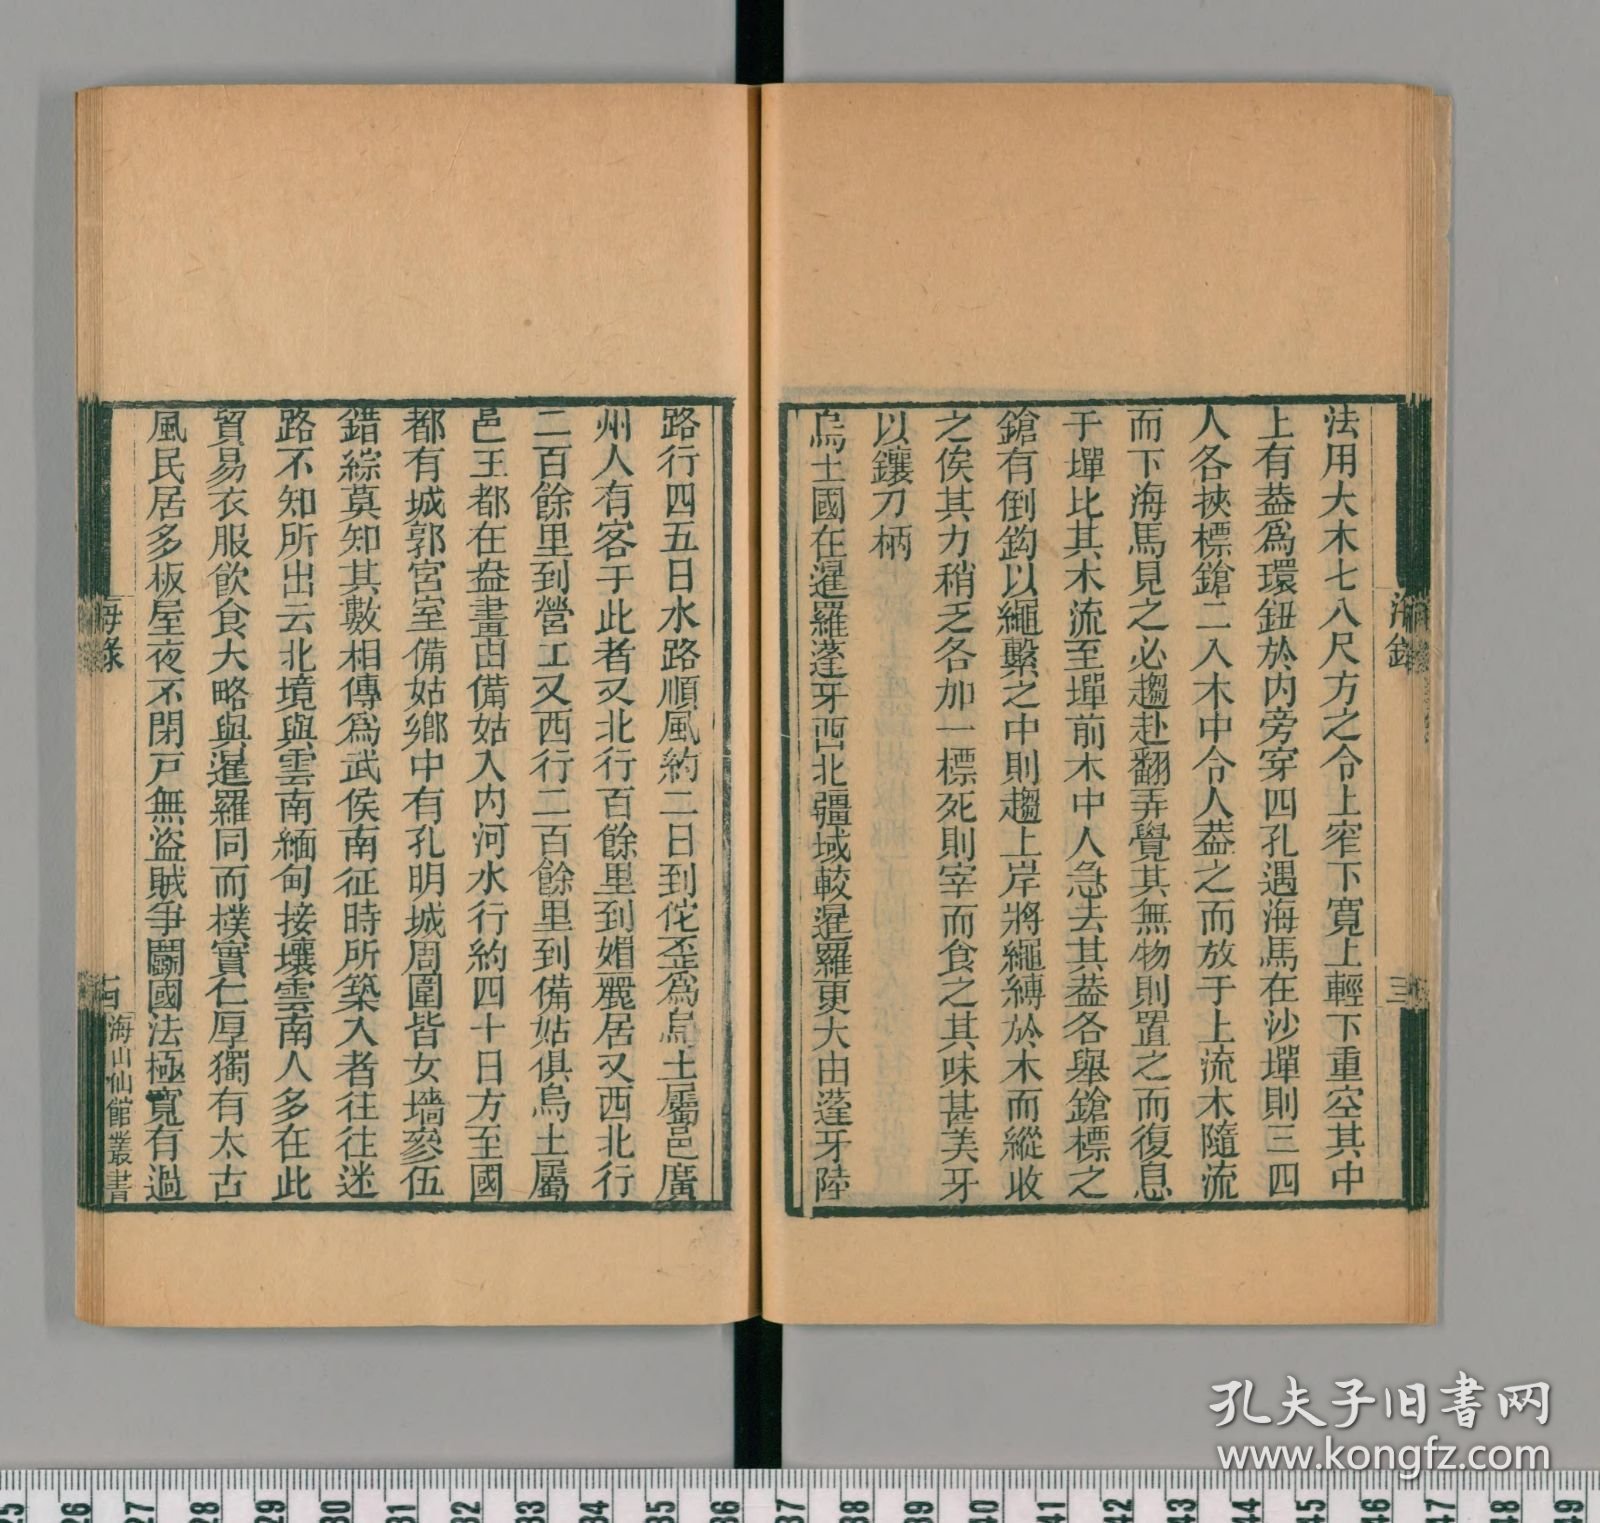 法用大木七八尺方之令上窄下寬上輕下重空其中
上有葢爲環鈕於內旁穿四孔遇海馬在沙墠則三四
人各挾標鎗二入木中令人葢之而放于上流木隨流
而下海馬見之必趨赴翻弄覺其無物則置之而復息
于墠比其木流至墠前木中人急去其葢各舉鎗標之
鎗有倒鈎以繩繫之中則趨上岸將繩縛於木而縱收
之俟其力稍乏各加一標死則宰而食之其味甚美牙
以鑲刀柄
烏土國在暹羅蓬牙西北疆域較暹羅更大由蓬牙陸
路行四五日水路順風約二日到佗歪爲烏土屬邑廣
州人有客于此者又北行百餘里到媚麗居又西北行
二百餘里到營工又西行二百餘里到備姑俱烏土屬
邑王都在盎畫由備姑入內河水行約四十日方至國
都有城郭宮室備姑鄉中有孔明城周圍皆女墻參伍
錯綜莫知其數相傳爲武侯南征時所築入者往往迷
路不知所出云北境與雲南緬甸接壤雲南人多在此
貿易衣服飲食大略與暹羅同而樸實仁厚獨有太古
風民居多板屋夜不閉戸無盜賊争鬭國法極寬有過
海錄
三
海錄
海山仙館叢書
孔夫子旧书网
www.kongfz.com
25 26 27 28 29 30 31 32 33 34 35 36 37 38 39 40 41 42 43 44 45 46 47 48 49